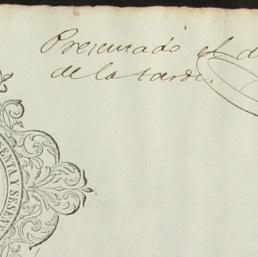 Presentado el d
de la tarde.
SENTA Y SESEN